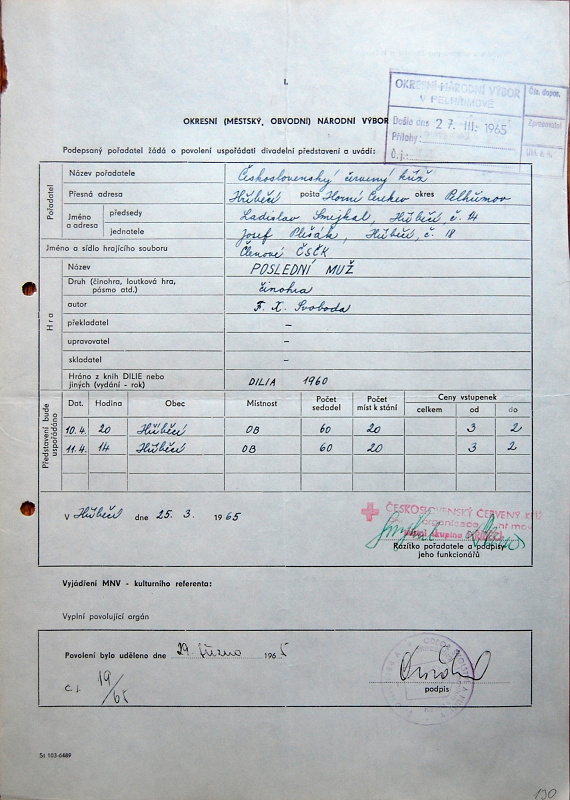 I.
OKRESNÍ (MĚSTSKÝ, OBVODNÍ) NÁRODNÍ VÝBOR
OKRESNÍ NÁRODNÍ VÝBOR
V PELHŘIMOVĚ
Došlo dne 27. III. 1965
Přílohy:
Č. j.:
Čís. dopor.
Zpracovatel
Podepsaný pořadatel žádá o povolení uspořádati divadelní představení a uvádí:
Pořadatel
Název pořadatele Československý červený kříž
Přesná adresa Hříběcí pošta Horní Cerekev okres Pelhřimov
Jméno a adresa
předsedy Ladislav Smejkal, Hříběcí č. 14
jednatele Josef Plišák, Hříběcí, č. 18
Jméno a sídlo hrajícího souboru Členové ČSČK
Hra
Název POSLEDNÍ MUŽ
Druh (činohra, loutková hra, pásmo atd.) činohra
autor F. X. Svoboda
překladatel –
upravovatel –
skladatel –
Hráno z knih DILIE nebo jiných (vydání - rok) DILIA 1960
Představení bude uspořádáno
Dat. Hodina Obec Místnost Počet sedadel Počet míst k stání Ceny vstupenek
celkem od do
10.4. 20 Hříběcí OB 60 20 3 2
11.4. 14 Hříběcí OB 60 20 3 2
V Hříběcí dne 25. 3. 1965
ČESKOSLOVENSKÝ ČERVENÝ KŘÍŽ
Razítko pořadatele a podpisy
jeho funkcionářů
Vyjádření MNV - kulturního referenta:
Vyplní povolující orgán
Povolení bylo uděleno dne 29. března 1965
Č. j. 19/65
podpis
St 103-6489
130